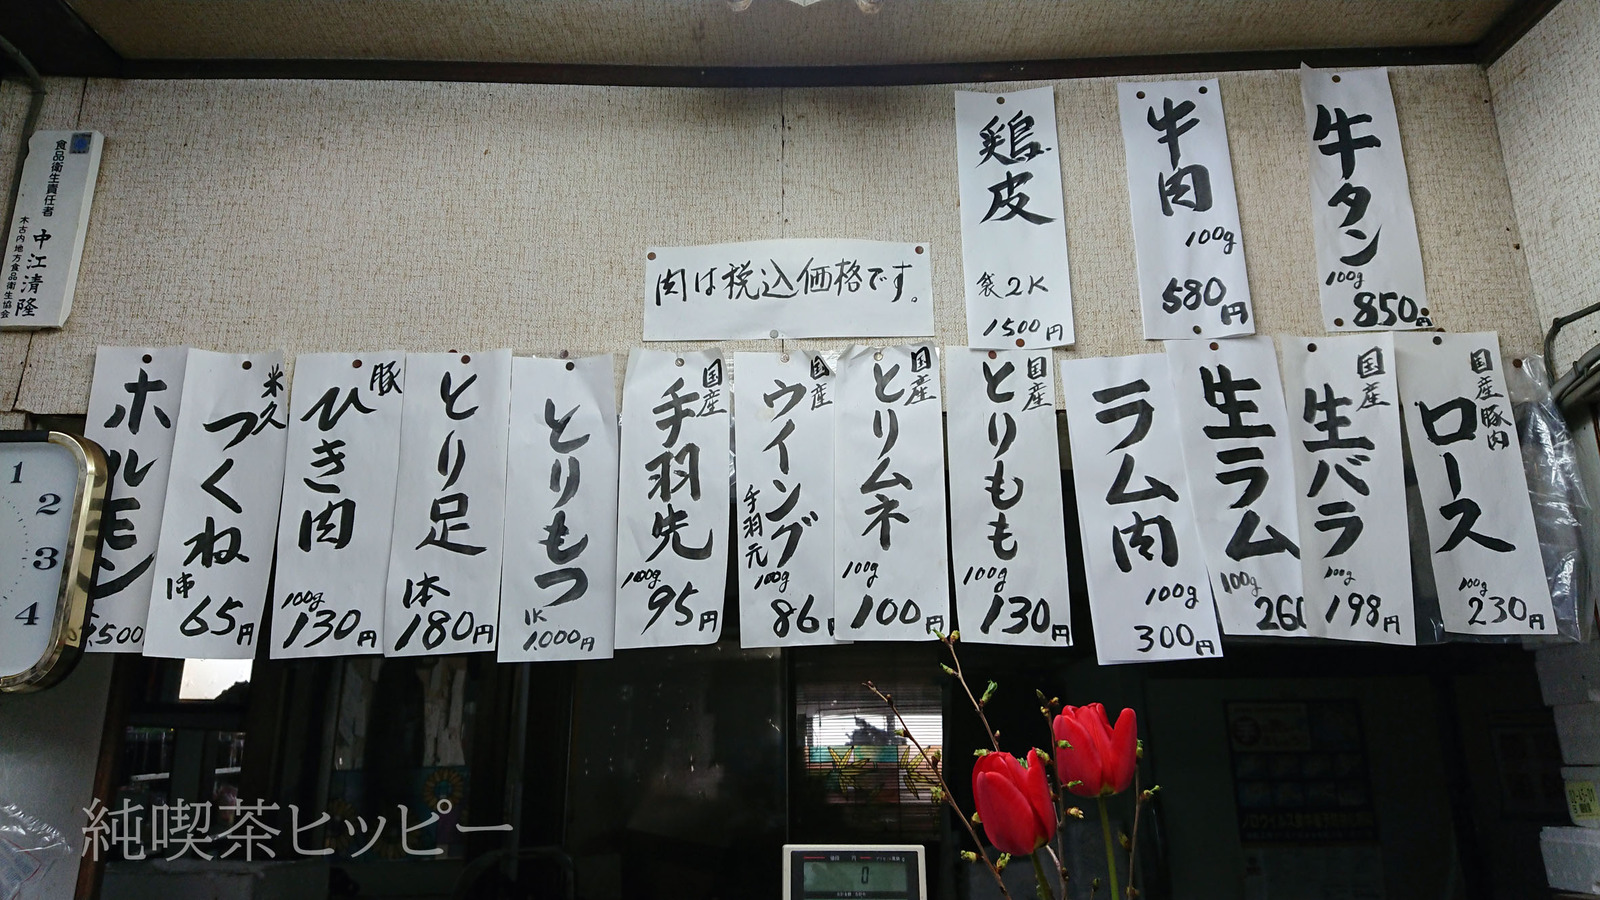 牛タン
100g
850円
牛肉
100g
580円
鶏皮
袋2K
1500円
肉は税込価格です。
食品衛生責任者
中江清隆
木古内地方食品衛生協会
国産豚肉
ロース
100g
230円
国産
生バラ
100g
198円
生ラム
100g
260
ラム肉
100g
300円
国産
とりもも
100g
130円
国産
とりムネ
100g
100円
国産
ウイング
手羽元
100g
86円
国産
手羽先
100g
95円
とりもつ
1K
1.000円
とり足
1本
180円
豚
ひき肉
100g
130円
米久
つくね
1串
65円
ホルモン
500
1
2
3
4
純喫茶ヒッピー
0